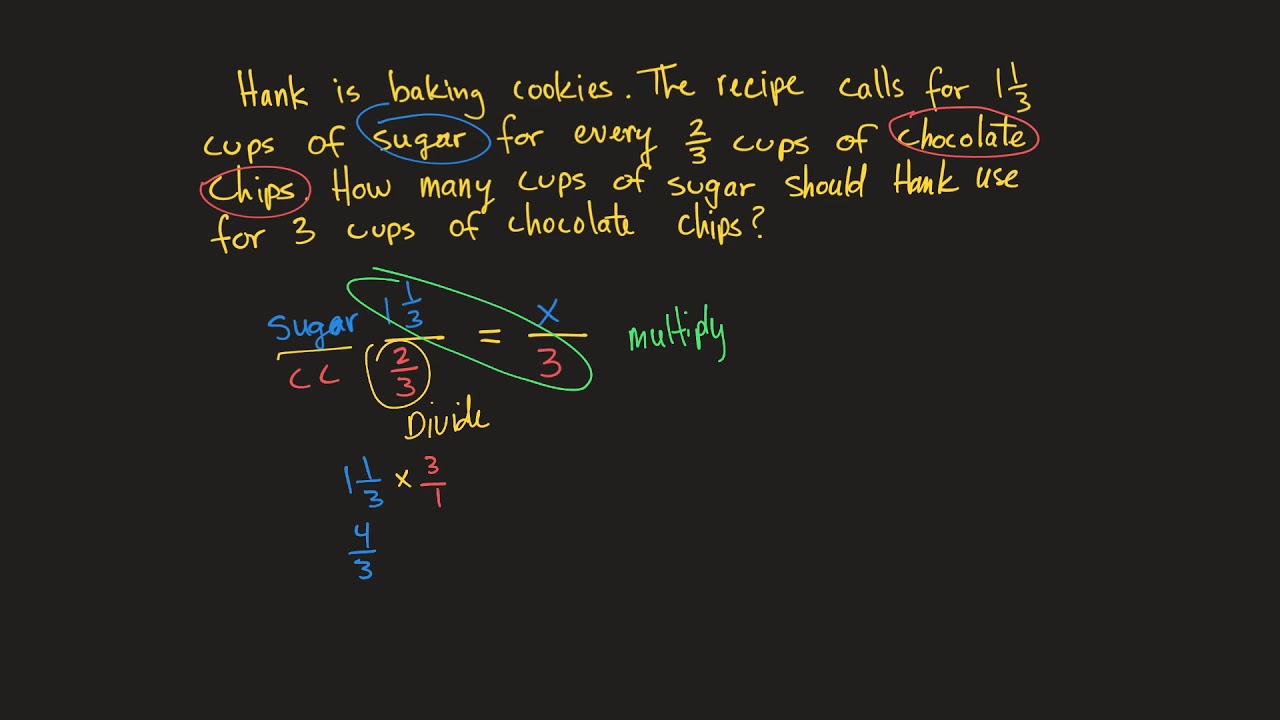 Hank is baking cookies. The recipe calls for 1 1/3
cups of sugar for every 2/3 cups of chocolate
chips. How many cups of sugar should Hank use
for 3 cups of chocolate chips?
sugar/CC 1 1/3 / 2/3 = x/3 multiply
Divide
1 1/3 x 3/1
4/3